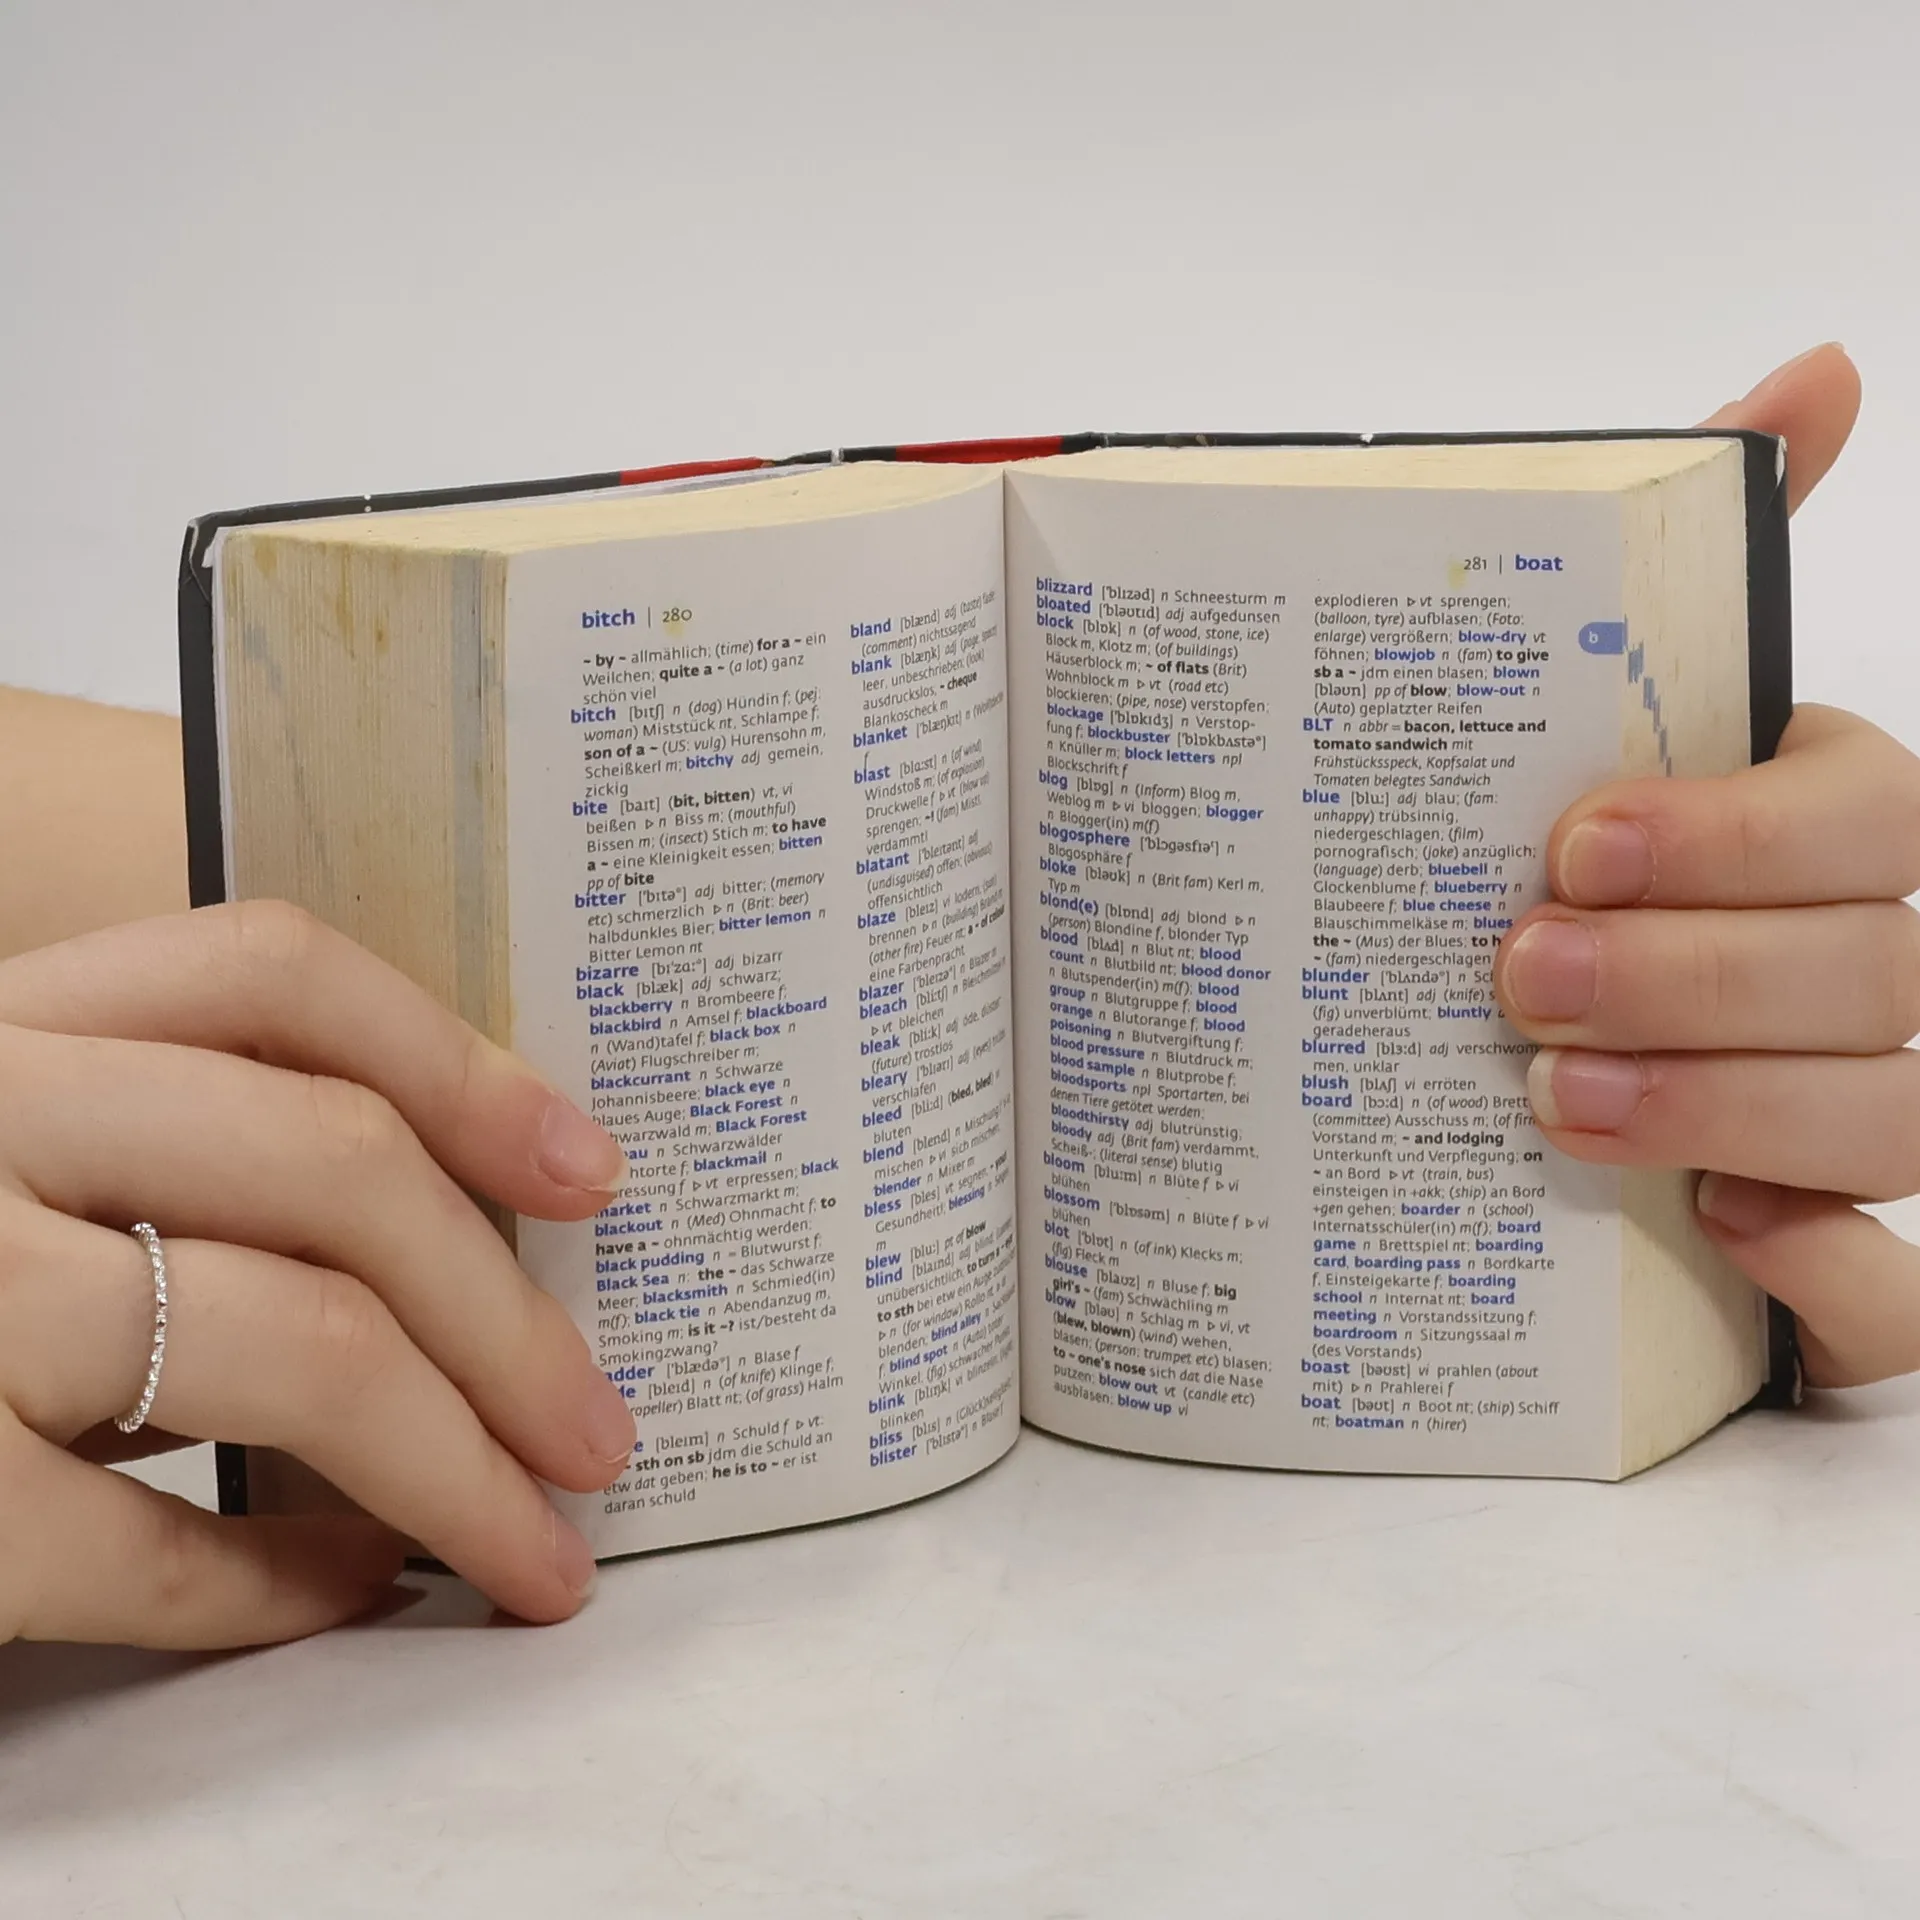 bitch | 280
~ by ~ allmählich; (time) for a ~ ein
Weilchen; quite a ~ (a lot) ganz
schön viel
bitch [bɪtʃ] n (dog) Hündin f; (pej:
woman) Miststück nt, Schlampe f;
son of a ~ (US: vulg) Hurensohn m,
Scheißkerl m; bitchy adj gemein,
zickig
bite [baɪt] (bit, bitten) vt, vi
beißen ▷ n Biss m; (mouthful)
Bissen m; (insect) Stich m; to have
a ~ eine Kleinigkeit essen; bitten
pp of bite
bitter ['bɪtəʳ] adj bitter; (memory
etc) schmerzlich ▷ n (Brit: beer)
halbdunkles Bier; bitter lemon n
Bitter Lemon nt
bizarre [bɪ'zɑ:ʳ] adj bizarr
black [blæk] adj schwarz;
blackberry n Brombeere f;
blackbird n Amsel f; blackboard
n (Wand)tafel f; black box n
(Aviat) Flugschreiber m;
blackcurrant n Schwarze
Johannisbeere; black eye n
blaues Auge; Black Forest n
hwarzwald m; Black Forest
au n Schwarzwälder
htorte f; blackmail n
ressung f ▷ vt erpressen; black
market n Schwarzmarkt m;
blackout n (Med) Ohnmacht f; to
have a ~ ohnmächtig werden;
black pudding n ≈ Blutwurst f;
Black Sea n: the ~ das Schwarze
Meer; blacksmith n Schmied(in)
m(f); black tie n Abendanzug m,
Smoking m; is it ~? ist/besteht da
Smokingzwang?
adder ['blædəʳ] n Blase f
de [bleɪd] n (of knife) Klinge f;
ropeller) Blatt nt; (of grass) Halm
e [bleɪm] n Schuld f ▷ vt:
~ sth on sb jdm die Schuld an
etw dat geben; he is to ~ er ist
daran schuld
bland [blænd] adj (taste) fade
(comment) nichtssagend
blank [blæŋk] adj (page, space)
leer, unbeschrieben; (look)
ausdruckslos; ~ cheque
Blankoscheck m
blanket ['blæŋkɪt] n (Wolldecke
f
blast [blɑ:st] n (of wind)
Windstoß m; (of explosion)
Druckwelle f ▷ vt (blow up)
sprengen; ~! (fam) Mist!,
verdammt!
blatant ['bleɪtənt] adj
(undisguised) offen; (obvious)
offensichtlich
blaze [bleɪz] vi lodern; (sun)
brennen ▷ n (building) Brand m
(other fire) Feuer nt; a ~ of colour
eine Farbenpracht
blazer ['bleɪzəʳ] n Blazer m
bleach [bli:tʃ] n Bleichmittel n
▷ vt bleichen
bleak [bli:k] adj öde, düster
(future) trostlos
bleary ['blɪərɪ] adj (eyes) trübe
verschlafen
bleed [bli:d] (bled, bled) vi
bluten
blend [blend] n Mischung f
mischen ▷ vi sich mischen
blender n Mixer m
bless [bles] vt segnen; ~ you
Gesundheit!; blessing n Segen
m
blew [blu:] pt of blow
blind [blaɪnd] adj blind
unübersichtlich; to turn a ~ eye
to sth bei etw ein Auge
▷ n (for window) Rollo nt
blenden; blind alley n Sackgasse
f; blind spot n (Auto) toter
Winkel; (fig) schwacher Punkt
blink [blɪŋk] vi blinzeln; (light)
blinken
bliss [blɪs] n (Glück)seligkeit
blister ['blɪstəʳ] n Blase f
281 | boat
blizzard ['blɪzəd] n Schneesturm m
bloated ['bləʊtɪd] adj aufgedunsen
block [blɒk] n (of wood, stone, ice)
Block m, Klotz m; (of buildings)
Häuserblock m; ~ of flats (Brit)
Wohnblock m ▷ vt (road etc)
blockieren; (pipe, nose) verstopfen;
blockage ['blɒkɪdʒ] n Verstop-
fung f; blockbuster ['blɒkbʌstəʳ]
n Knüller m; block letters npl
Blockschrift f
blog [blɒg] n (Inform) Blog m,
Weblog m ▷ vi bloggen; blogger
n Blogger(in) m(f)
blogosphere ['blɔgəsfɪəʳ] n
Blogosphäre f
bloke [bləʊk] n (Brit fam) Kerl m,
Typ m
blond(e) [blɒnd] adj blond ▷ n
(person) Blondine f, blonder Typ
blood [blʌd] n Blut nt; blood
count n Blutbild nt; blood donor
n Blutspender(in) m(f); blood
group n Blutgruppe f; blood
orange n Blutorange f; blood
poisoning n Blutvergiftung f;
blood pressure n Blutdruck m;
blood sample n Blutprobe f;
bloodsports npl Sportarten, bei
denen Tiere getötet werden;
bloodthirsty adj blutrünstig;
bloody adj (Brit fam) verdammt,
Scheiß-; (literal sense) blutig
bloom [blu:m] n Blüte f ▷ vi
blühen
blossom ['blɒsəm] n Blüte f ▷ vi
blühen
blot [blɒt] n (of ink) Klecks m;
(fig) Fleck m
blouse [blaʊz] n Bluse f; big
girl's ~ (fam) Schwächling m
blow [bləʊ] n Schlag m ▷ vi, vt
(blew, blown) (wind) wehen,
blasen; (person: trumpet etc) blasen;
to ~ one's nose sich dat die Nase
putzen; blow out vt (candle etc)
ausblasen; blow up vi
explodieren ▷ vt sprengen;
(balloon, tyre) aufblasen; (Foto:
enlarge) vergrößern; blow-dry vt
föhnen; blowjob n (fam) to give
sb a ~ jdm einen blasen; blown
[bləʊn] pp of blow; blow-out n
(Auto) geplatzter Reifen
BLT n abbr = bacon, lettuce and
tomato sandwich mit
Frühstücksspeck, Kopfsalat und
Tomaten belegtes Sandwich
blue [blu:] adj blau; (fam:
unhappy) trübsinnig,
niedergeschlagen; (film)
pornografisch; (joke) anzüglich;
(language) derb; bluebell n
Glockenblume f; blueberry n
Blaubeere f; blue cheese n
Blauschimmelkäse m; blues
the ~ (Mus) der Blues; to h
~ (fam) niedergeschlagen
blunder ['blʌndəʳ] n Sc
blunt [blʌnt] adj (knife) s
(fig) unverblümt; bluntly
geradeheraus
blurred [blɜ:d] adj verschwom
men, unklar
blush [blʌʃ] vi erröten
board [bɔ:d] n (of wood) Brett
(committee) Ausschuss m; (of firm
Vorstand m; ~ and lodging
Unterkunft und Verpflegung; on
~ an Bord ▷ vt (train, bus)
einsteigen in +akk; (ship) an Bord
+gen gehen; boarder n (school)
Internatsschüler(in) m(f); board
game n Brettspiel nt; boarding
card, boarding pass n Bordkarte
f, Einsteigekarte f; boarding
school n Internat nt; board
meeting n Vorstandssitzung f;
boardroom n Sitzungssaal m
(des Vorstands)
boast [bəʊst] vi prahlen (about
mit) ▷ n Prahlerei f
boat [bəʊt] n Boot nt; (ship) Schiff
nt; boatman n (hirer)
b